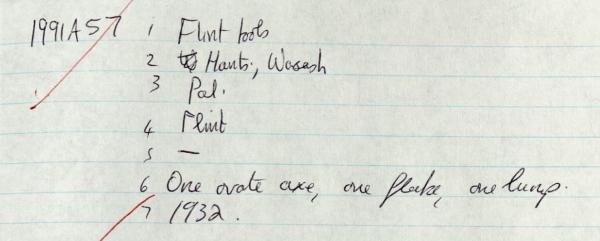 1991A57 1 Flint tools
2 Hants., Warsash
3 Pal.
4 Flint
5 —
6 One ovate axe, one flake, one lump.
7 1932.